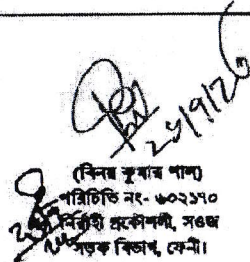 ২৮/৭/২৬
(বিনয় কুমার পাল)
পরিচিতি নং- ৬০২১৭০
নির্বাহী প্রকৌশলী, সওজ
সড়ক বিভাগ, ফেনী।